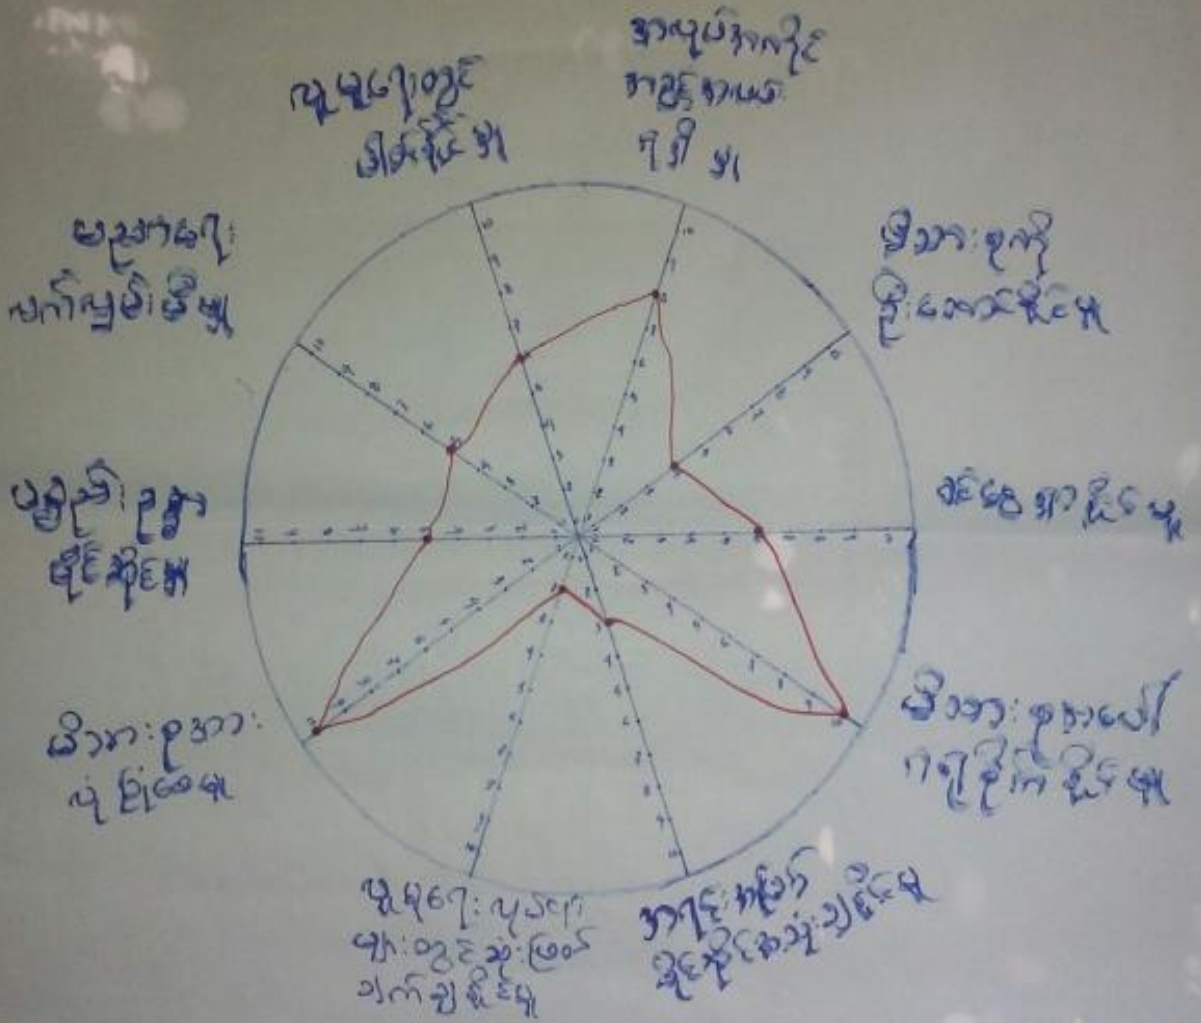 လူမှုရေးတွင်
ပါဝင်နိုင်မှု
အလုပ်အကိုင်
အခွင့်အလမ်း
ရရှိမှု
မိသားစုကို
ဦးဆောင်နိုင်မှု
ဝင်ငွေရှာနိုင်မှု
မိသားစုအပေါ်
ဂရုစိုက်နိုင်မှု
အရင်းအမြစ်
ပိုင်ဆိုင်အသုံးချနိုင်မှု
လူမှုရေးလုပ်ငန်း
များတွင်ဆုံးဖြတ်
ချက်ချနိုင်မှု
မိသားစုအား
လုံခြုံစေမှု
ပစ္စည်းဥစ္စာ
ပိုင်ဆိုင်မှု
ပညာရေး
လက်လှမ်းမီမှု